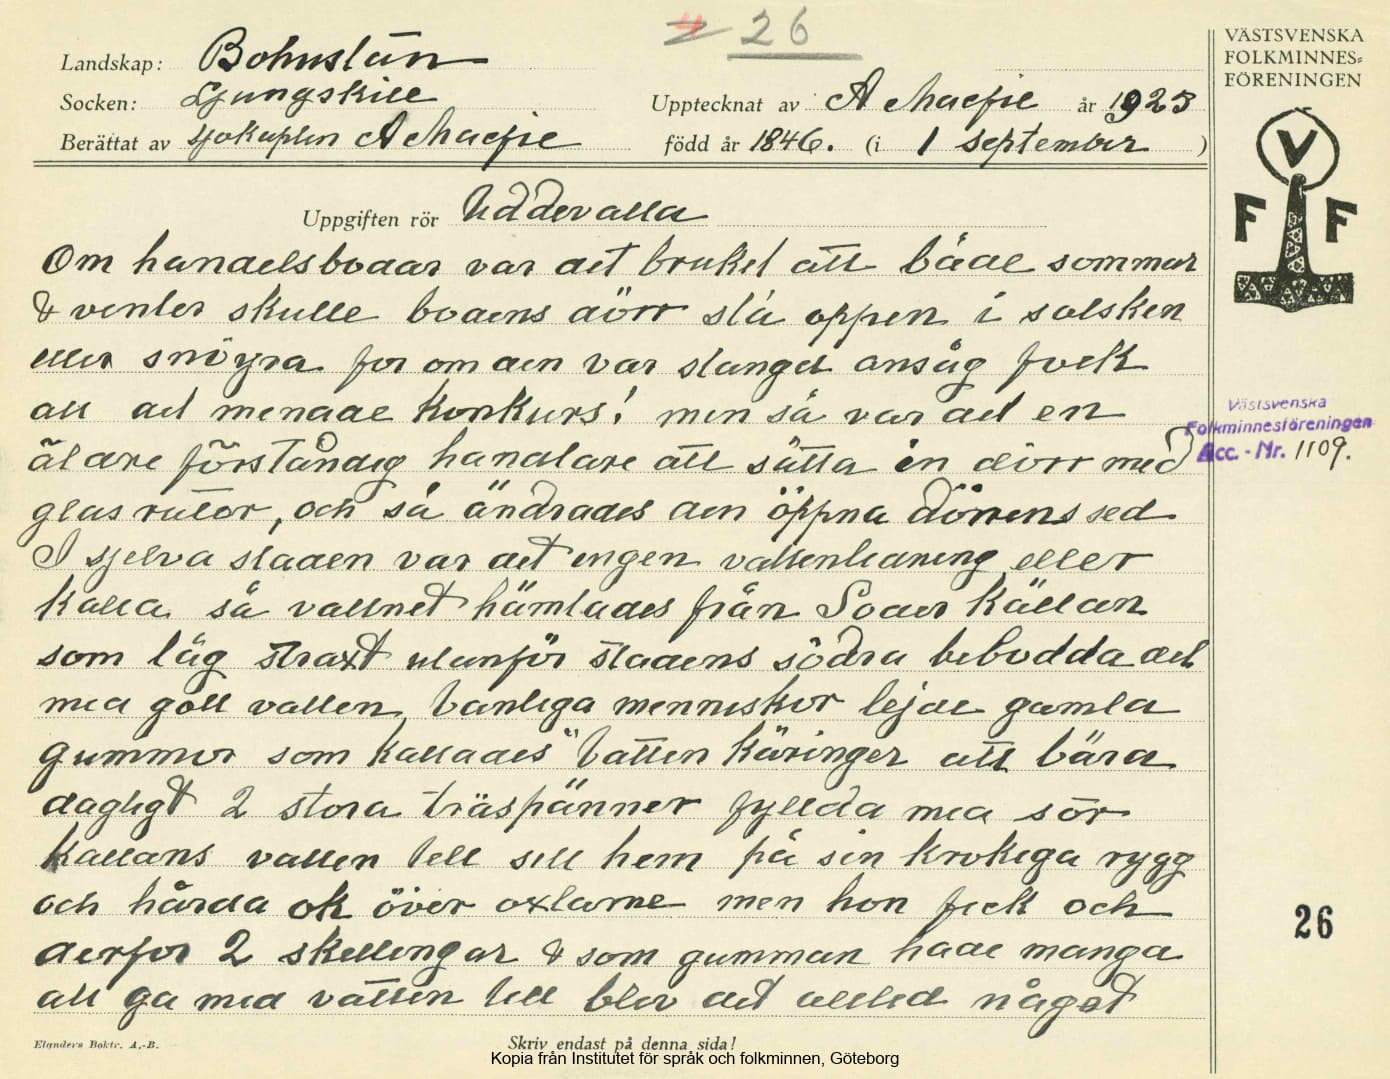 4 26
Landskap: Bohuslän
Socken: Ljungskile
Berättat av sjökapten A Macfie
Upptecknat av A Macfie år 1923
född år 1846. (i 1 september )
VÄSTSVENSKA
FOLKMINNES-
FÖRENINGEN
V
F F
Uppgiften rör Uddevalla
Om handelsbodar var det bruket att både sommar
& venter skulle bodens dörr stå öppen i solsken
eller snöyra for om den var stanget ansåg folk
att det menade konkurs! men så var det en
äldre förståndig handlare att sätta in dörr med
glas rutor, och så ändrades den öppna dörrens sed
I sjelva staden var det ingen vattenledning eller
kalla så vattnet hämtades från Soder källan
som låg straxt utanför stadens södra bebodda del
med gott vatten, Vanliga menniskor lejde gamla
gummor som kallades "Vatten käringer att bära
dagligt 2 stora träspänner fyllda med sör
kallans vatten tell sitt hem på sin krokiga rygg
och hårda ok över axlarne men hon fick och
derfor 2 skellingar & som gumman hade manga
att ga med vatten tell blev det alltid något
Västsvenska
Folkminnesföreningen
Acc. - Nr. 1109.
26
Elanders Boktr. A.-B.
Skriv endast på denna sida!
Kopia från Institutet för språk och folkminnen, Göteborg